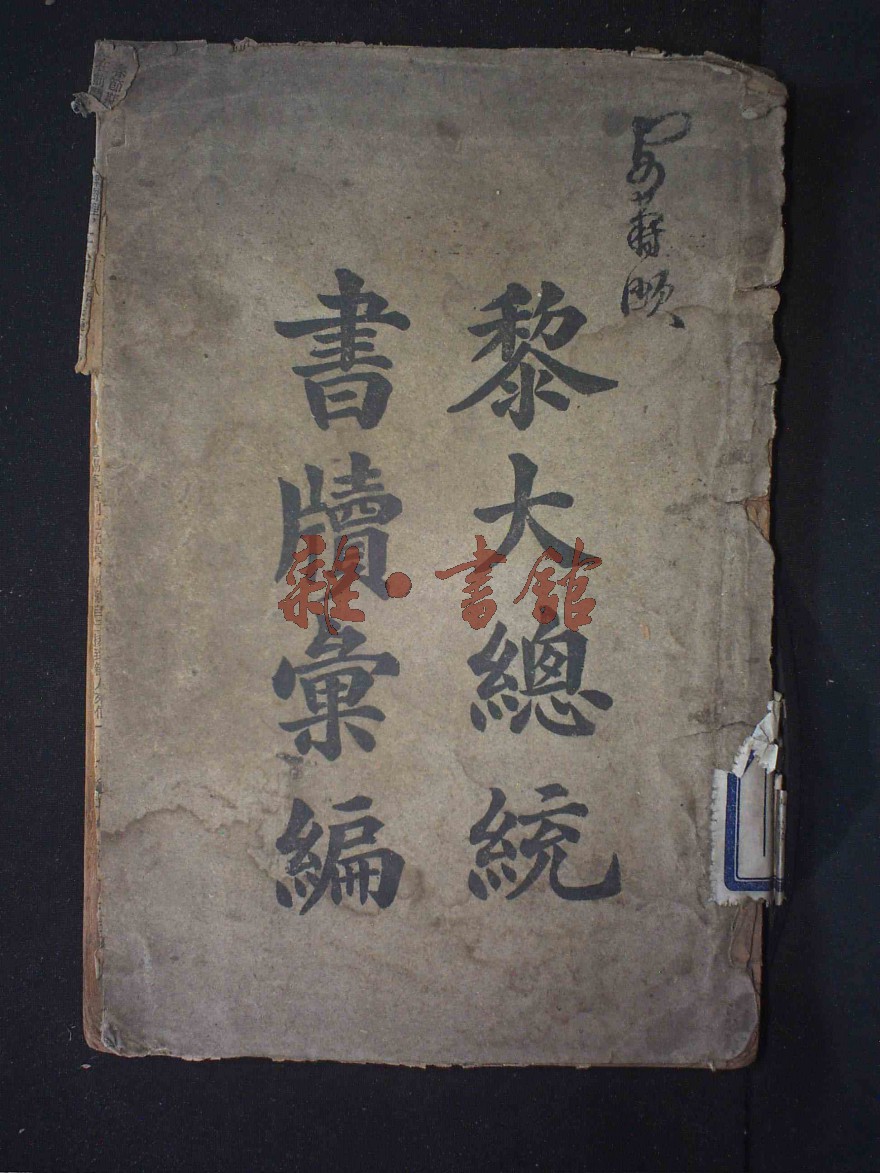 黎大總統
書牘彙編
雜·書館